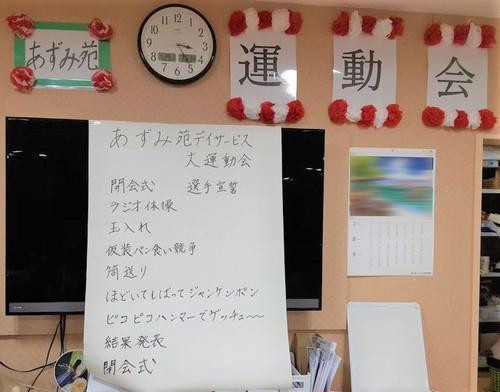 あずみ苑
運動会
あずみ苑デイサービス
大運動会
開会式 選手宣誓
ラジオ体操
玉入れ
仮装パン食い競争
筒送り
ほどいてしばってジャンケンポン
ピコピコハンマーでゲッチュ〜〜
結果発表
閉会式
12
1
2
3
4
5
6
7
8
9
10
11